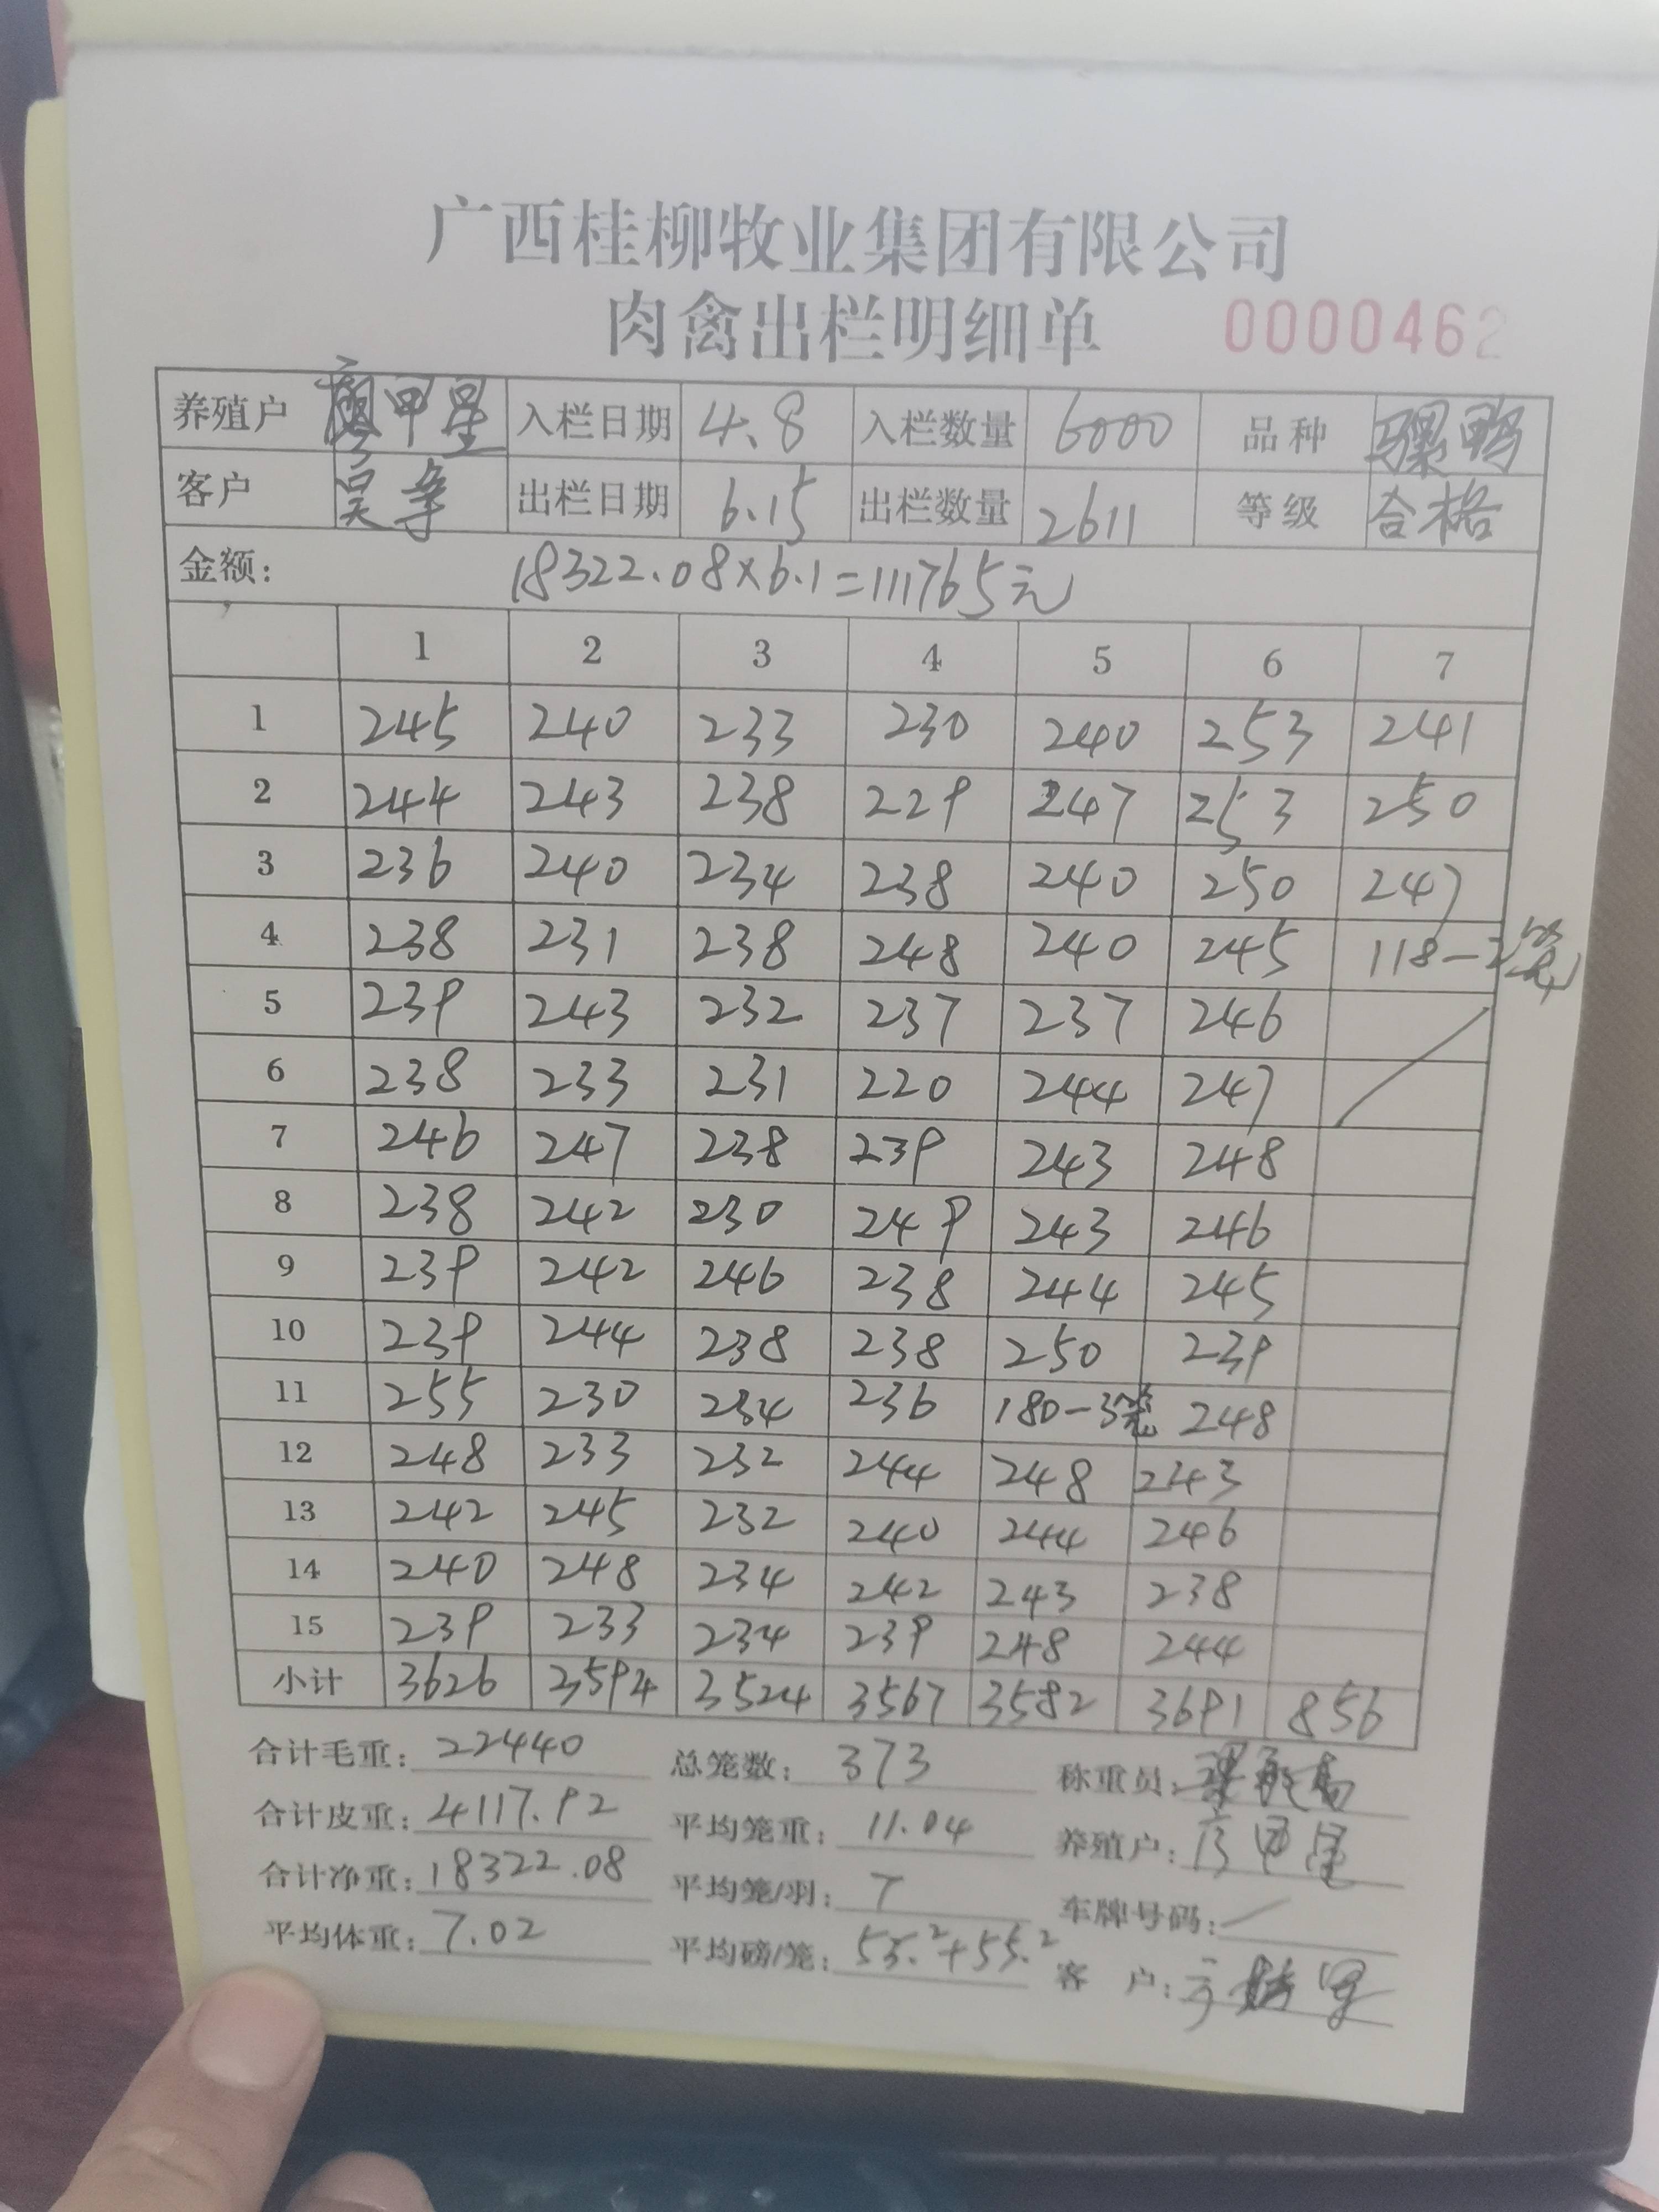 广西桂柳牧业集团有限公司
肉禽出栏明细单 0000462
养殖户 甲星 入栏日期 4.8 入栏数量 6000 品种 骡鸭
客户 吴争 出栏日期 6.15 出栏数量 2611 等级 合格
金额: 18322.08×6.1=111765元
1 2 3 4 5 6 7
1 245 240 233 230 240 253 241
2 244 243 238 229 247 253 250
3 236 240 234 238 240 250 247
4 238 231 238 248 240 245 118-2笼
5 239 243 232 237 237 246
6 238 233 231 220 244 247
7 246 247 238 239 243 248
8 238 242 230 249 243 246
9 239 242 246 238 244 245
10 239 244 238 238 250 239
11 255 230 234 236 180-3笼 248
12 248 233 232 244 248 243
13 242 245 232 240 244 246
14 240 248 234 242 243 238
15 239 233 234 239 248 244
小计 3626 3594 3524 3567 3582 3691 856
合计毛重: 22440 总笼数: 373 称重员:
合计皮重: 4117.92 平均笼重: 11.04 养殖户: 甲星
合计净重: 18322.08 平均笼/羽: 7 车牌号码: /
平均体重: 7.02 平均磅/笼: 55.²+55.² 客 户: